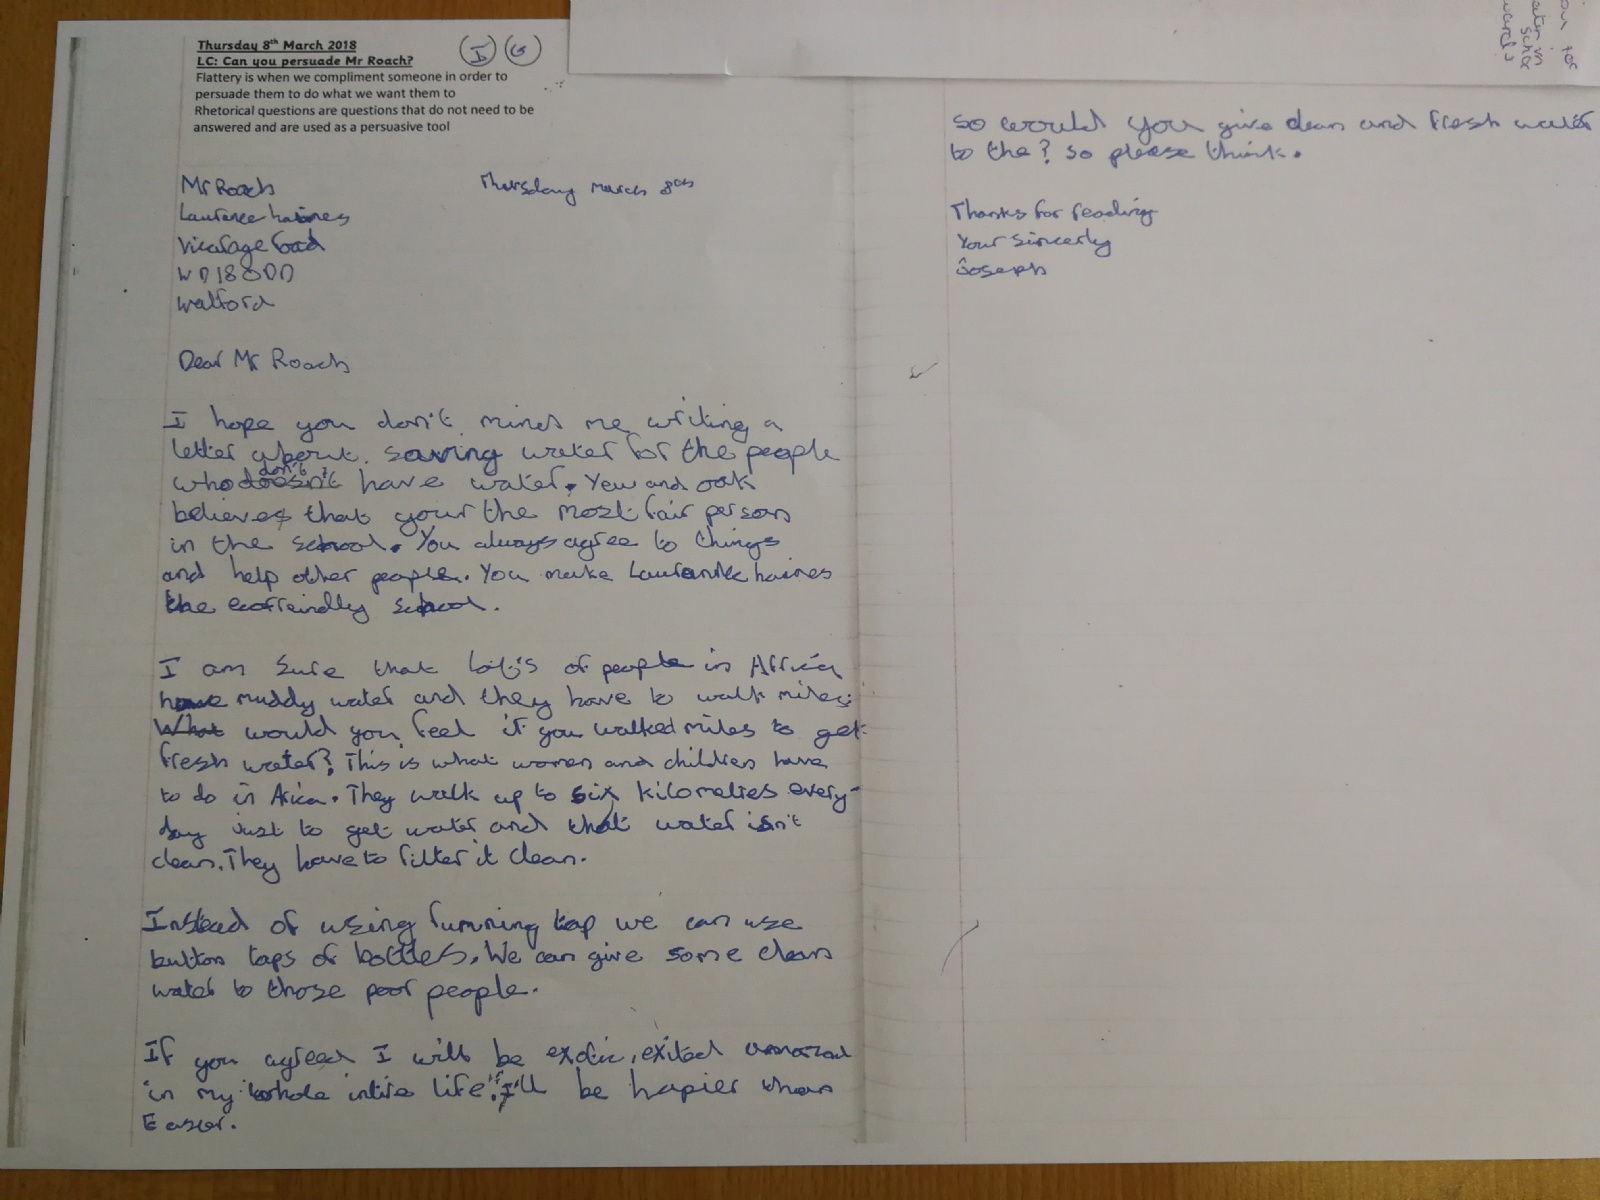 Thursday 8th March 2018
LC: Can you persuade Mr Roach?
Flattery is when we compliment someone in order to
persuade them to do what we want them to
Rhetorical questions are questions that do not need to be
answered and are used as a persuasive tool
I G
Mr Roach
Thursday March 8th
Laurance haines
Vicarage road
WD180DD
Watford
Dear Mr Roach
I hope you don't mind me writing a
letter about saving water for the people
who don't have water. Yew and oak
believes that your the most fair person
in the school. You always agree to things
and help other people. You make Laurance haines
the ecofreindly school.
I am sure that lots of people in Africa
have muddy water and they have to walk miles.
What would you feel if you walked miles to get
fresh water? This is what women and children have
to do in Arica. They walk up to six kilometres every-
day just to get water and that water isn't
clean. They have to filter it clean.
Instead of using running tap we can use
button taps or bottles. We can give some clean
water to those poor people.
If you agreed I will be exotic, exited
in my whole intire life. I'll be hapier than
Easter.
So would you give clean and fresh water
to the? So please think.
Thanks for reading
Your sincerly
Joseph